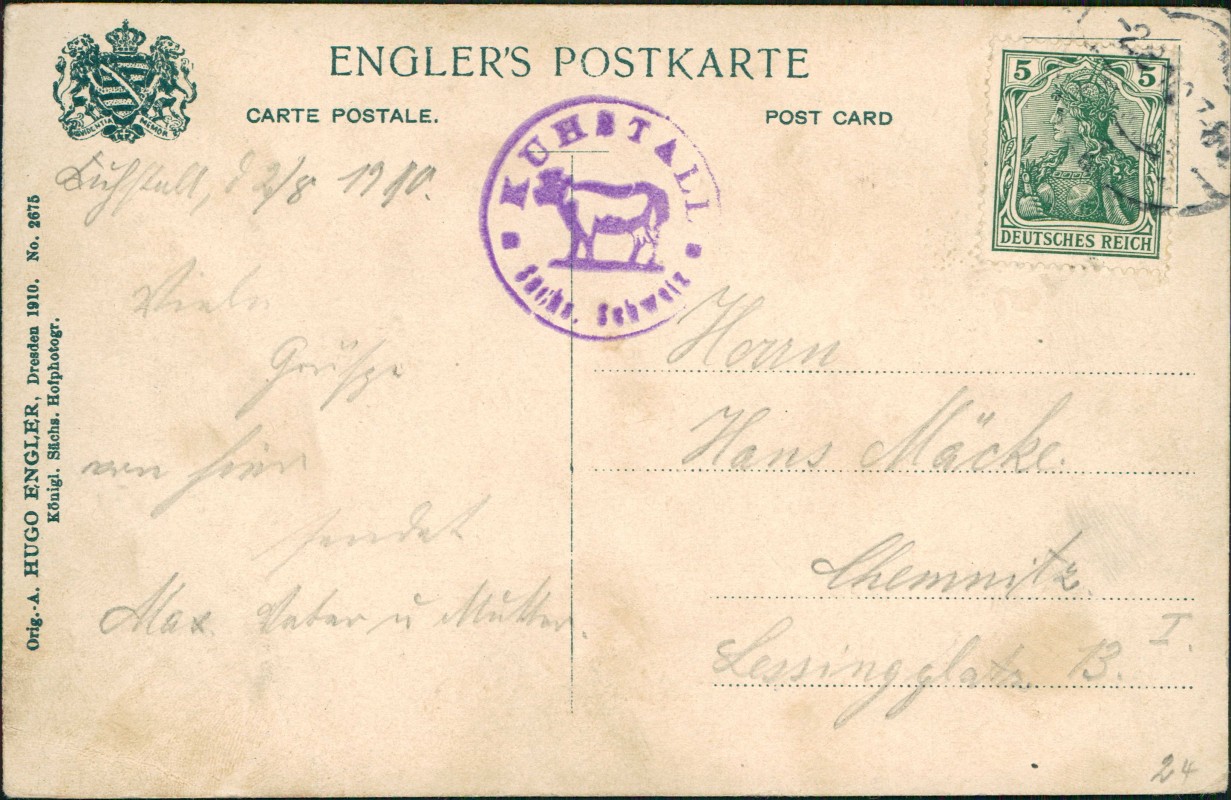 ENGLER'S POSTKARTE
CARTE POSTALE.
POST CARD
PROVIDENTIAE MEMOR
KUHSTALL
Sächs. Schweiz
5 5
DEUTSCHES REICH
Kuhstall, d 2/8 1910.
Viele
Grüße
von hier
sendet
Max. Vater u Mutter.
Herrn
Hans Mäcke.
Chemnitz.
Lessingplatz 13. I.
24
Orig.-A. HUGO ENGLER, Dresden 1910. No. 2675
Königl. Sächs. Hofphotogr.